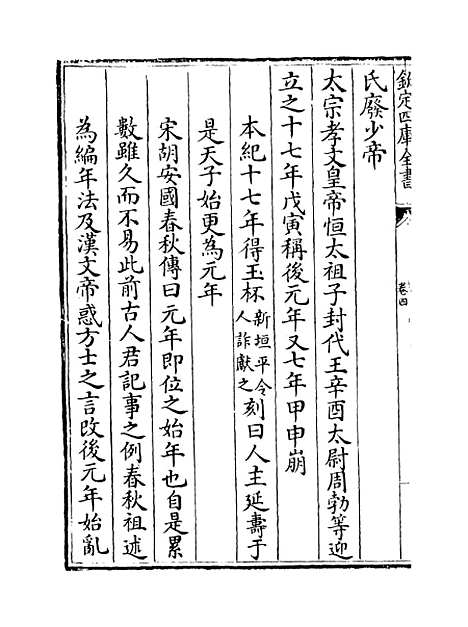 欽定四庫全書
卷四
氏廢少帝
太宗孝文皇帝恒太祖子封代王辛酉太尉周勃等迎
立之十七年戊寅稱後元年又七年甲申崩
本紀十七年得玉杯新垣平令人詐獻之刻曰人主延壽于
是天子始更為元年
宋胡安國春秋傳曰元年即位之始年也自是累
數雖久而不易此前古人君記事之例春秋祖述
為編年法及漢文帝惑方士之言改後元年始亂